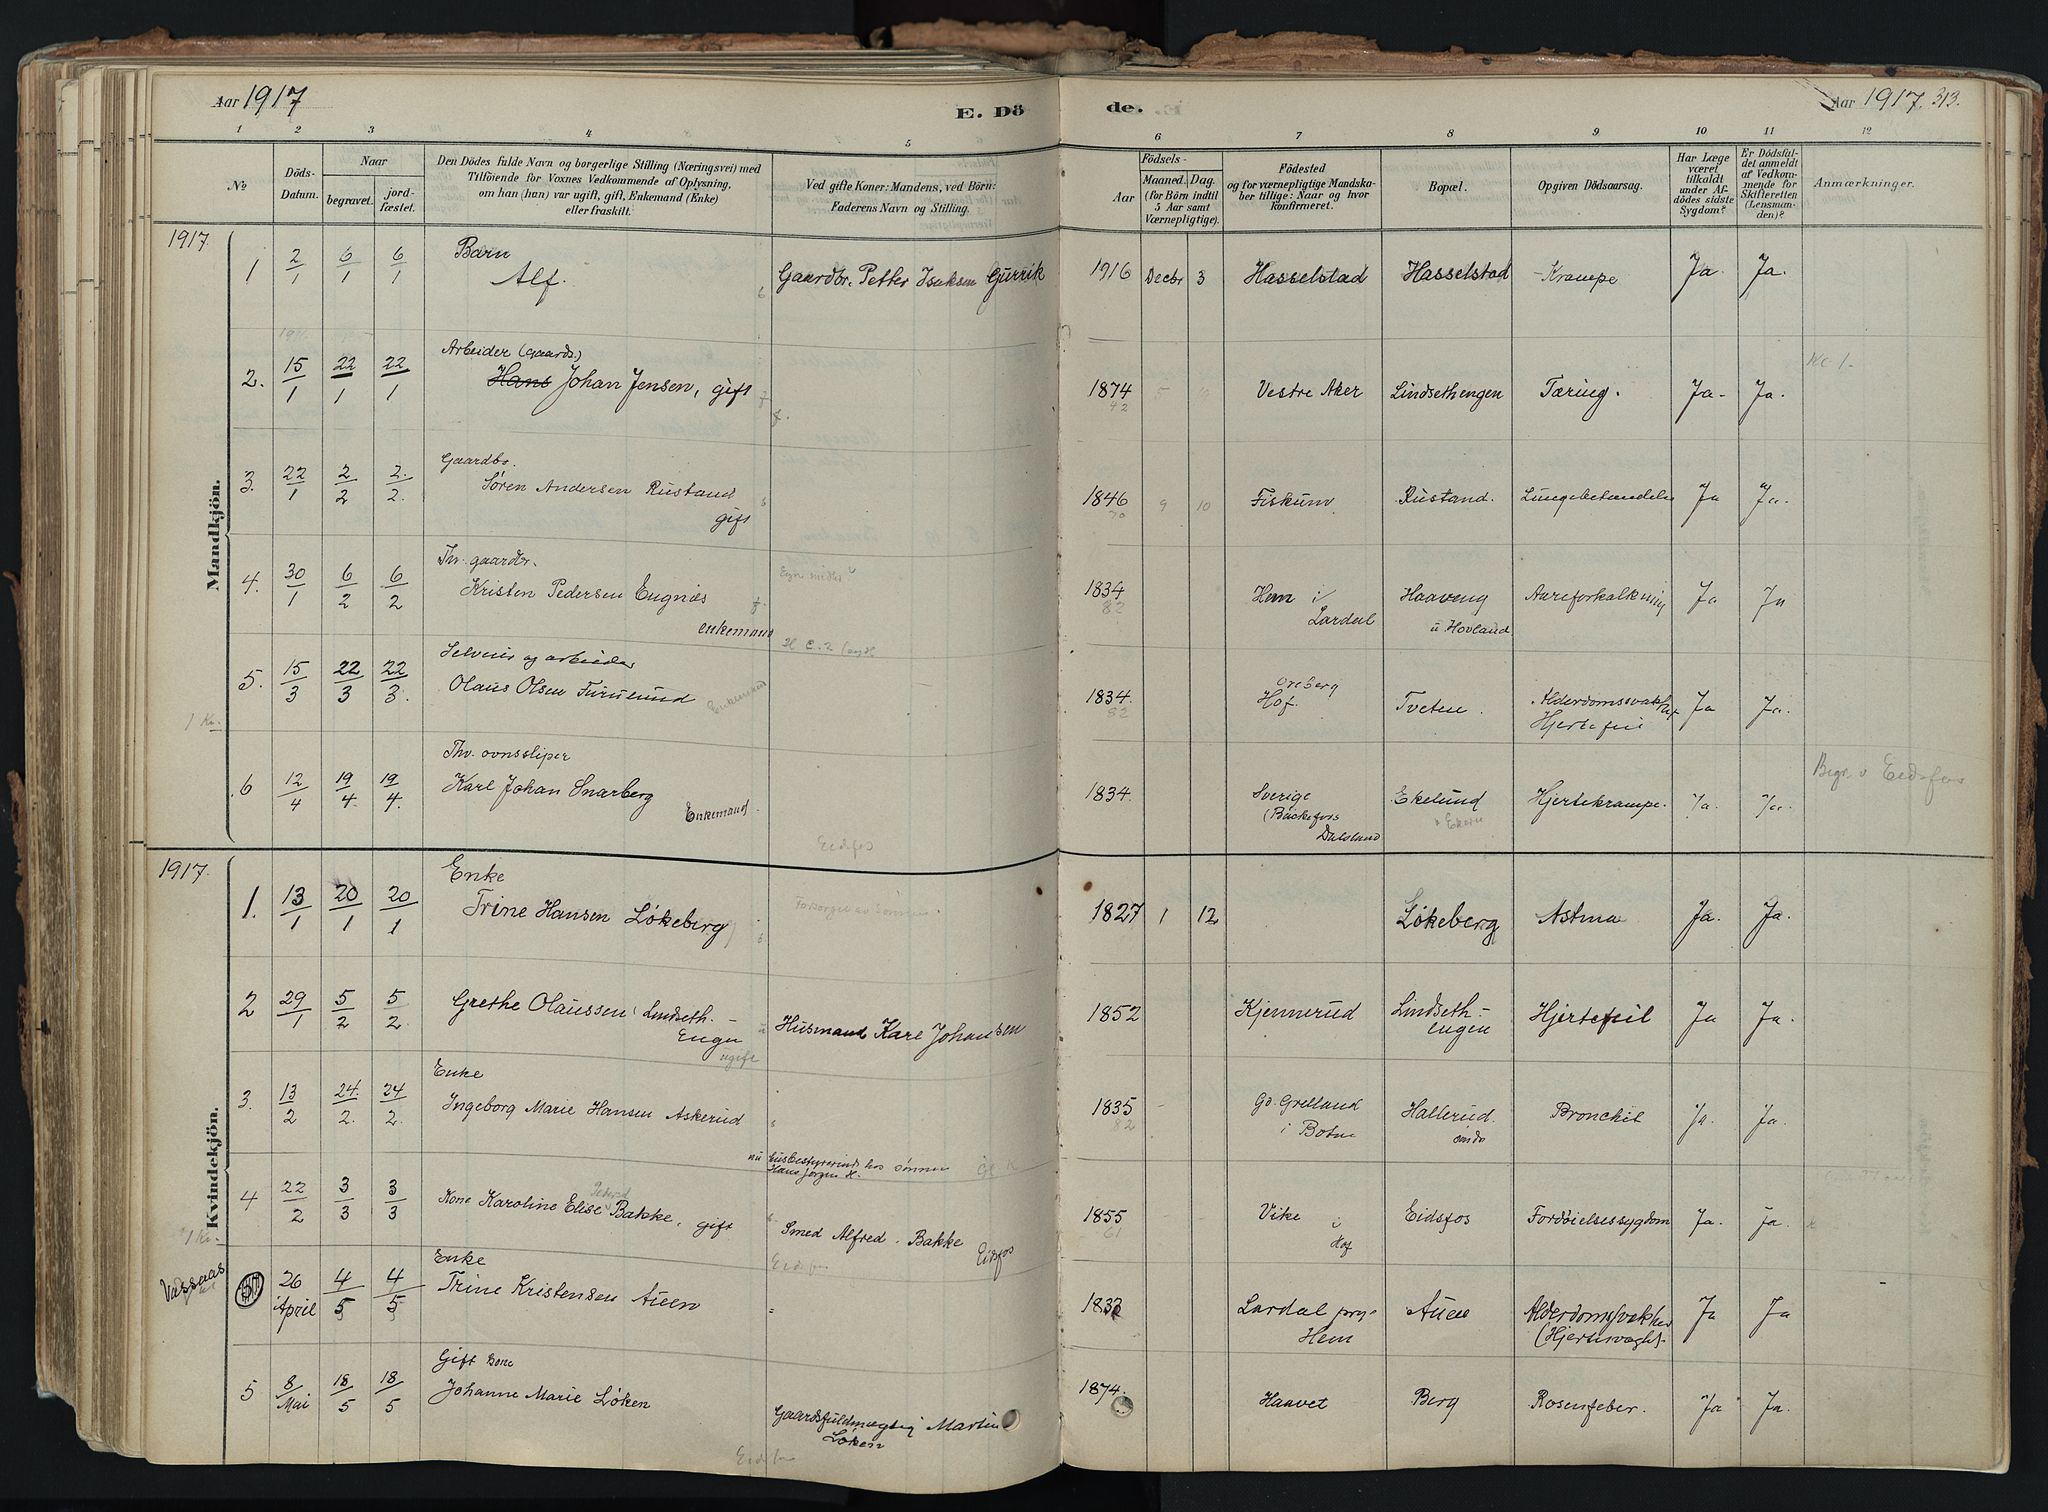 Aar 1917
E. Dö
de.
Aar 1917. 313.
1 2 3 4 5 6 7 8 9 10 11 12
No
Döds-
Datum.
Naar
begravet.
jord-
fæstet.
Den Dödes fulde Navn og borgerlige Stilling (Næringsvei) med
Tilföiende for Voxnes Vedkommende af Oplysning,
om han (hun) var ugift, gift, Enkemand (Enke)
eller fraskilt.
Ved gifte Koner: Mandens, ved Börn:
Faderens Navn og Stilling.
Födsels-
Aar
Maaned. Dag.
(for Börn indtil
5 Aar samt
Værnepligtige).
Födested
og for værnepligtige Mandska-
ber tillige: Naar og hvor
konfirmeret.
Bopæl.
Opgiven Dödsaarsag.
Har Læge
været
tilkaldt
under Af-
dödes sidste
Sygdom?
Er Dödsfal-
det anmeldt
af Vedkom-
mende for
Skifteretten
(Lensman-
den)?
Anmærkninger.
Mandkjön.
1917
1 2/1 6/1 6/1 Barn
Alf. Gaardbr. Petter Isaksen Gurrik 1916 Decbr 3 Hasselstad Hasselstad Krampe Ja. Ja.
2. 15/1 22/1 22/1 Arbeider (Gaards.)
Hans Johan Jensen, gift 1874 42 Vestre Aker Lindsethengen Tæring. Ja. Ja.
3. 22/1 2/2 2/2. Gaardbr.
Sören Andersen Rustand
gift 1846 70 9 10 Fiskum Rustand. Ja Ja.
4. 30/1 6/2 6/2 Thv. gaardbr.
Kristen Pedersen Engnæs
enkemand 1834 82 Hem i
Lardal Haaveng
u. Hovland Aareforkalkning Ja Ja
5. 15/3 22/3 22/3. Selveier og arbeider
Olaus Olsen Furulund Enkemand 1834. 82 Oreberg
Hof. Tveten. Alderdomssvakhet
Hjertefeil Ja Ja.
1 Kv.
6 12/4 19/4. 19/4. Thv. ovnssliper
Karl Johan Snarberg
Enkemand. 1834. Sverige
(Bäckefors
Dalsland Ekelund
v Ekern Hjertekrampe. Ja. Ja. Begr. v Eidsfos
Eidsfos
Kvindekjön.
1917.
1. 13/1 20/1 20/1 Enke
Trine Hansen Lökeberg Forsørget av sønnen. 1827 1 12 Lökeberg Astma Ja. Ja.
2 29/1 5/2 5/2. Grethe Olaussen Lindseth-
Engen
ugift Husmand Karl Johansen 1852 Kjennerud Lindseth-
engen Hjertefeil Ja Ja.
3. 13/2 24/2. 24/2. Enke
Ingeborg Marie Hansen Askerud
nu Husbestyrerinde hos sönnen
Hans Jörgen H. 1835 82 Gd. Grelland
i Botne Hallerud.
søndr Bronchit Ja. Ja.
4 22/2 3/3 3/3 Kone Karoline Elise Bakke, gift Smed Alfred Bakke
Eidsfos 1855 61 Vike i
Hof Eidsfos Fordöielsessygdom Ja. Ja.
1 Kv.
Vassaas
26 April 4/5 4/5 Enke
Trine Kristensen Auen 1832 Lardal prg.
Hem Auen Alderdomssvakhet
(Hjertesvaght). Ja Ja
5 8 Mai 18/5 18/5 Gift kone
Johanne Marie Löken Gaardsfuldmægtig Martin
Löken 1874. Haavet Berg Rosenfeber. Ja Ja.
Eidsfos